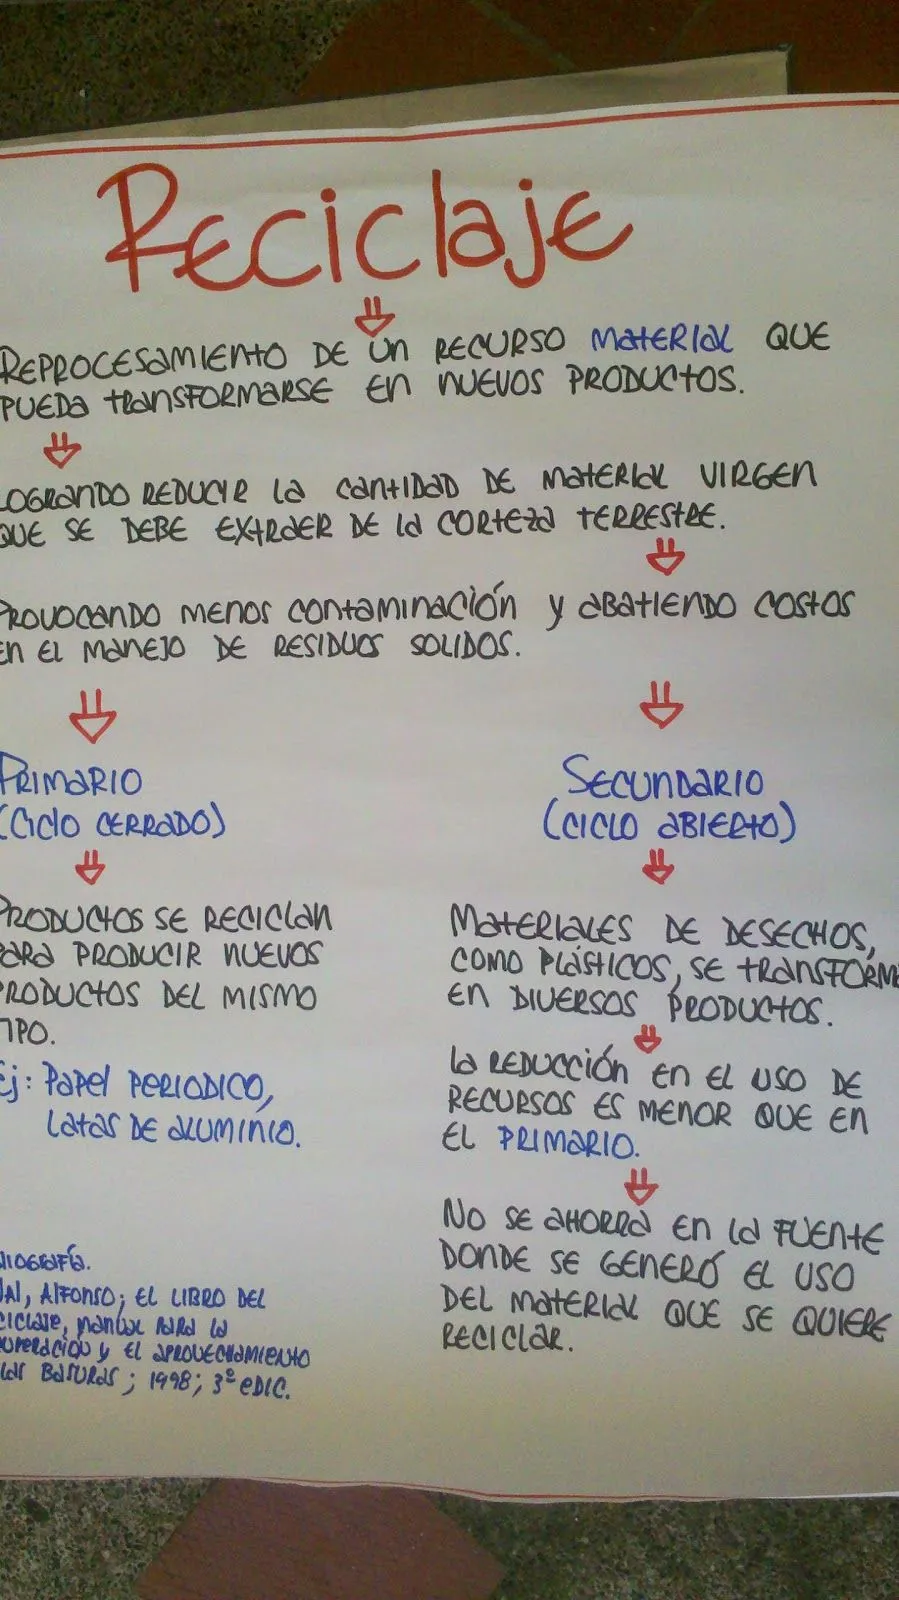 Reciclaje
REPROCESAMIENTO DE UN RECURSO MATERIAL QUE
PUEDA TRANSFORMARSE EN NUEVOS PRODUCTOS.
LOGRANDO REDUCIR LA CANTIDAD DE MATERIAL VIRGEN
QUE SE DEBE EXTRAER DE LA CORTEZA TERRESTRE.
PROVOCANDO MENOS CONTAMINACIÓN Y ABATIENDO COSTOS
EN EL MANEJO DE RESIDUOS SOLIDOS.
PRIMARIO
(CICLO CERRADO)
PRODUCTOS SE RECICLAN
PARA PRODUCIR NUEVOS
PRODUCTOS DEL MISMO
TIPO.
Ej: PAPEL PERIODICO,
LATAS DE ALUMINIO.
SECUNDARIO
(CICLO ABIERTO)
MATERIALES DE DESECHOS,
COMO PLÁSTICOS, SE TRANSFORMA
EN DIVERSOS PRODUCTOS.
LA REDUCCIÓN EN EL USO DE
RECURSOS ES MENOR QUE EN
EL PRIMARIO.
NO SE AHORRA EN LA FUENTE
DONDE SE GENERÓ EL USO
DEL MATERIAL QUE SE QUIERE
RECICLAR.
LIOGRAFÍA.
VAL, ALFONSO; EL LIBRO DEL
CICLAJE, MANUAL PARA LA
CUPERACION Y EL APROVECHAMIENTO
LAS BASURAS; 1998; 3º EDIC.